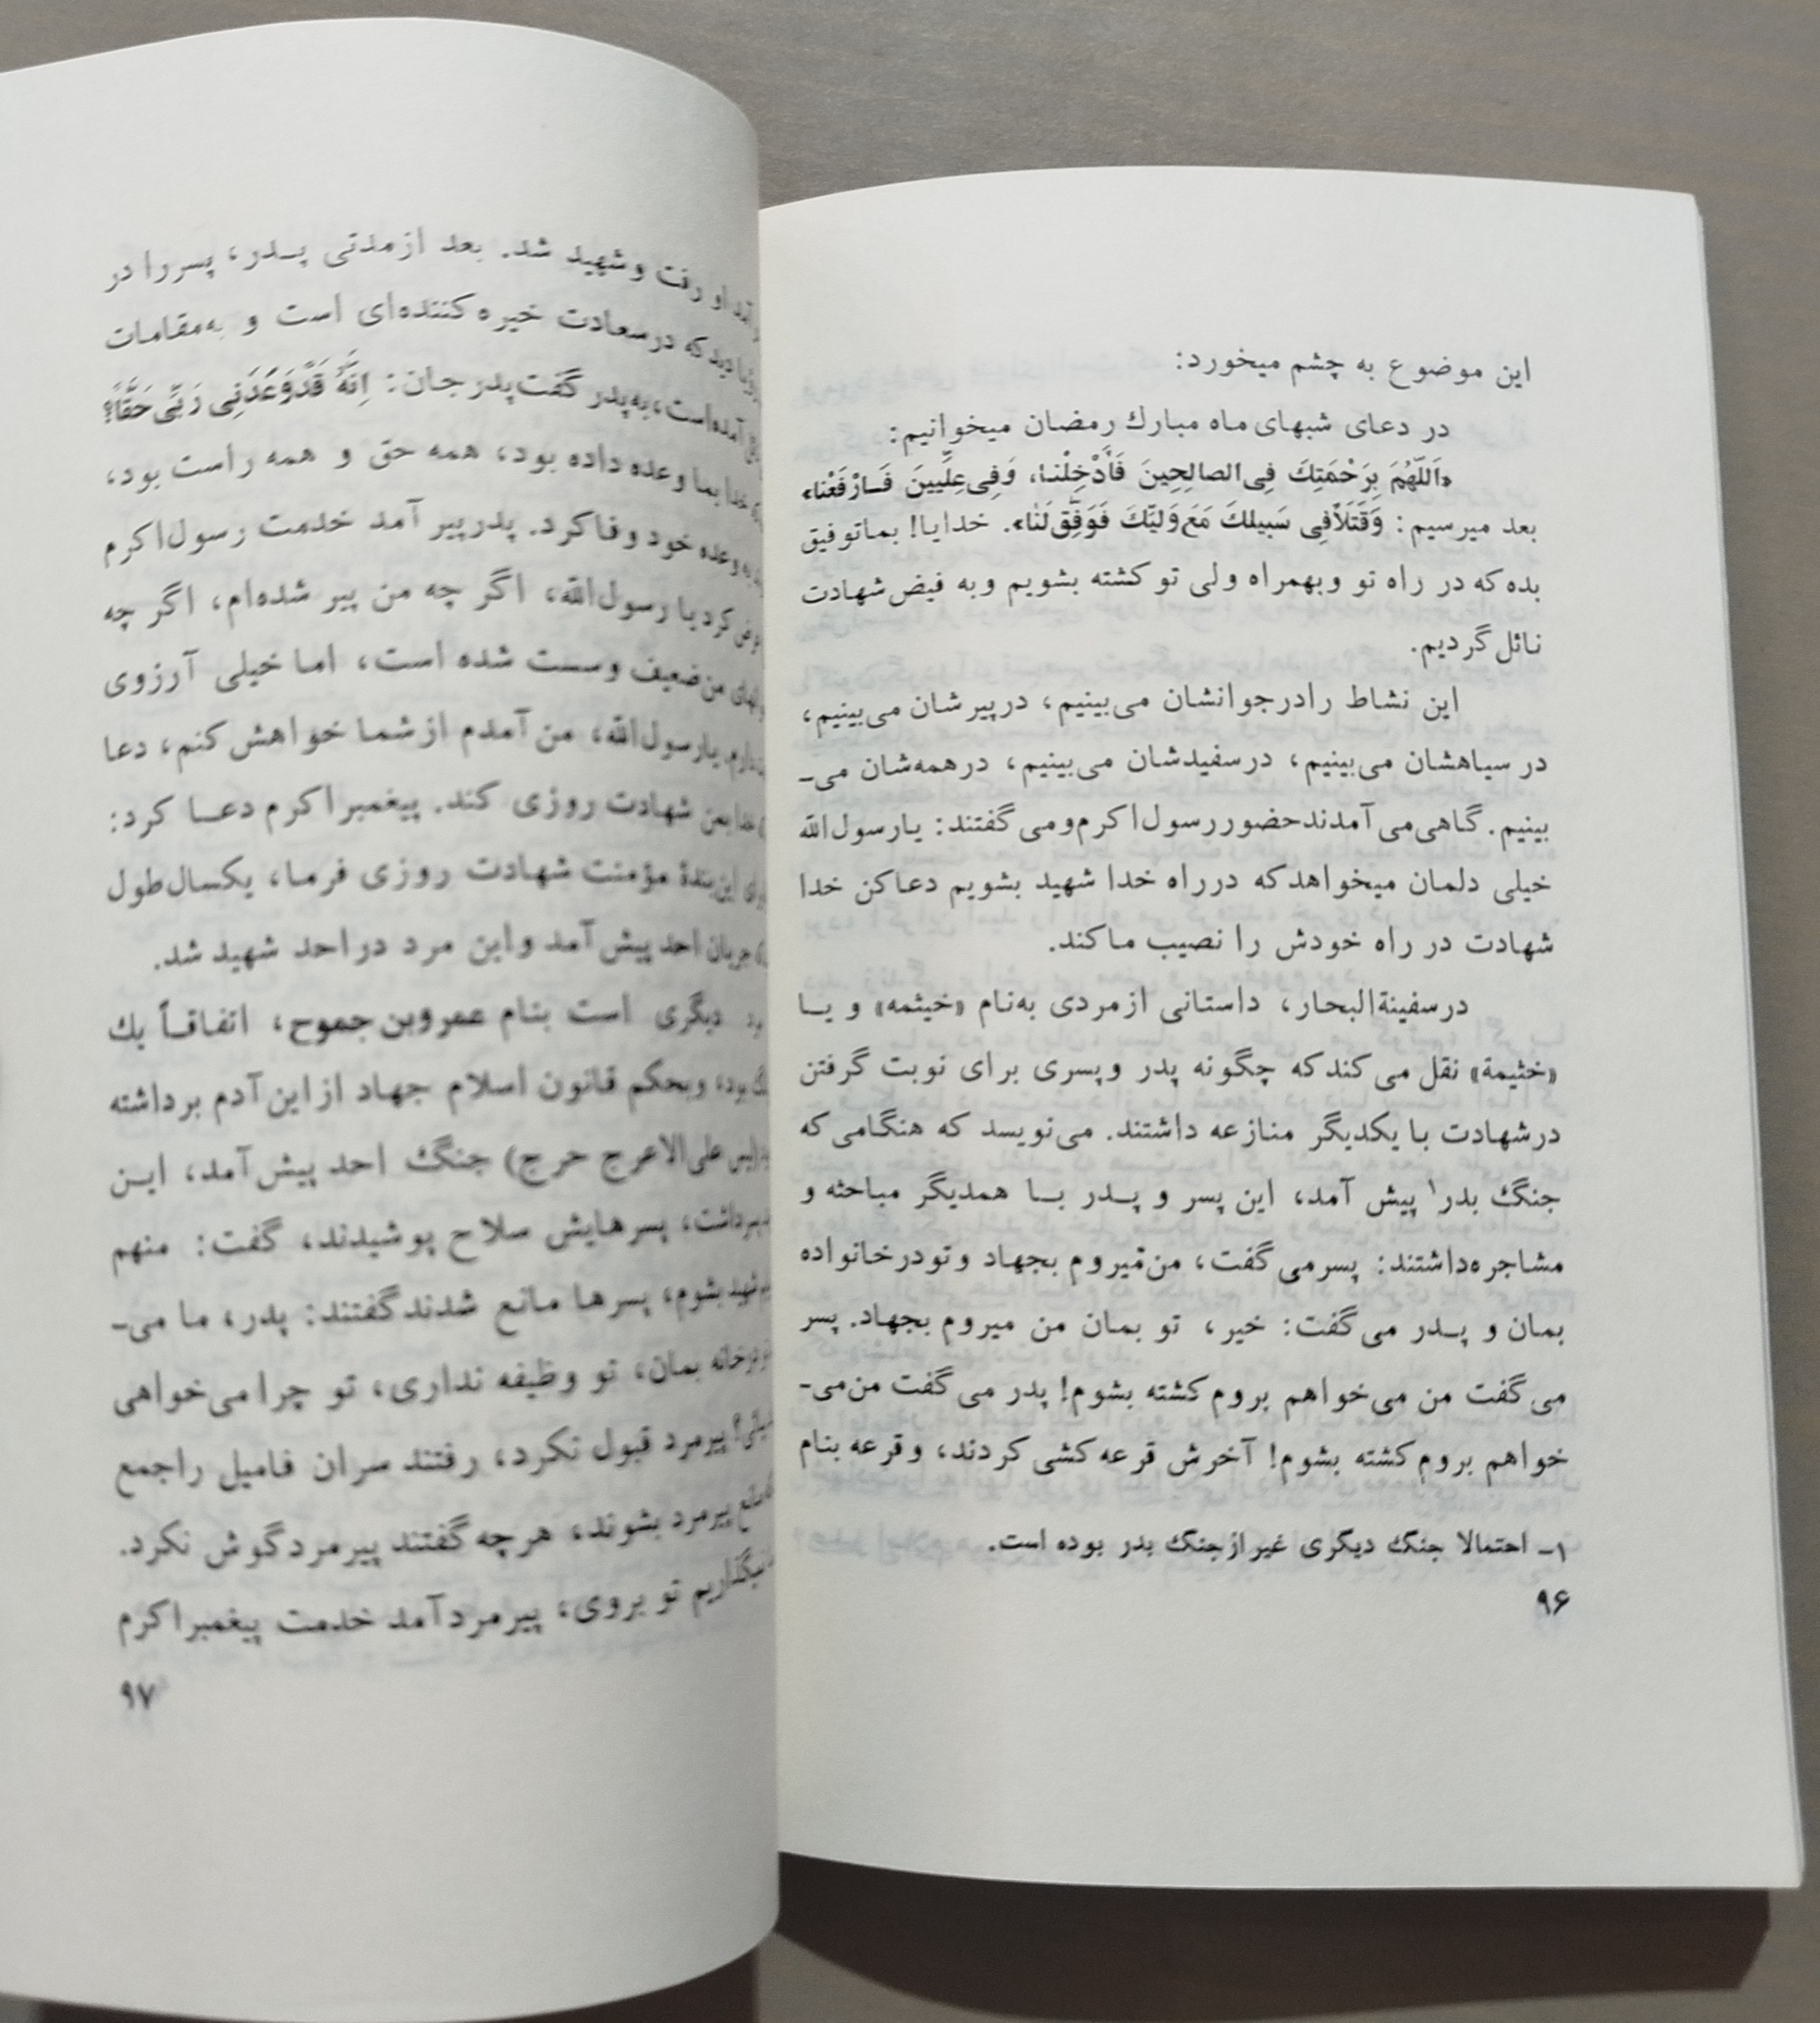 این موضوع به چشم میخورد:
در دعای شبهای ماه مبارك رمضان میخوانیم:
«اَللّهُمَ بِرَحْمَتِكَ فِی‌الصالِحِینَ فَأَدْخِلْنا، وَفِی‌عِلِّیینَ فَـارْفَعْنا»
بعد میرسیم: وَقَتَلَاًفِی سَبیلِكَ مَعَ‌وَلیِّكَ فَوَفِّق‌لَنٰا». خدایا! بماتوفیق
بده‌که در راه تو وبهمراه ولی تو کشته بشویم وبه فیض‌شهادت
نائل‌گردیم.
این نشاط رادرجوانشان می‌بینیم، درپیرشان می‌بینیم،
در سیاهشان می‌بینیم، درسفیدشان می‌بینیم، درهمه‌شان می‌-
بینیم. گاهی‌می‌آمدندحضوررسول‌اکرم‌ومی‌گفتند: یارسول‌الله
خیلی دلمان میخواهدکه درراه خدا شهید بشویم دعاکن خدا
شهادت در راه خودش را نصیب ماکند.
درسفینةالبحار، داستانی ازمردی به‌نام «خیثمه» و یـا
«خثیمة» نقل می‌کندکه چگونه پدر وپسری برای نوبت گرفتن
درشهادت با یکدیگر منازعه داشتند. می‌نویسد که هنگامی‌که
جنگ بدر۱ پیش آمد، این پسر و پـدر بـا همدیگر مباحثه و
مشاجره‌داشتند: پسرمی‌گفت، من‌میروم بجهاد وتودرخانواده
بمان و پـدر می‌گفت: خیر، تو بمان من میروم بجهاد. پسر
می‌گفت من می‌خواهم بروم‌کشته بشوم! پدر می‌گفت من‌می‌-
خواهم بروم‌کشته بشوم! آخرش قرعه‌کشی‌کردند، وقرعه بنام
۱- احتمالا جنگ دیگری غیرازجنگ بدر بوده است.
۹۶
آمد او رفت وشهید شد. بعد ازمدتی پـدر، پسررا در
دیدکه درسعادت خیره‌کننده‌ای است و به‌مقامات
آمده‌است،به‌پدر گفت‌پدرجان: اِنَّهُ قَدْوَعَدَنِی رَبِّی‌حَقّاً؟
خدابما وعده‌داده بود، همه حق و همه راست بود،
وعده خود وفاکرد. پدرپیر آمد خدمت رسول‌اکرم
کرد یا رسول‌الله، اگر چه من پیر شده‌ام، اگر چه
من‌ضعیف وسست شده است، اما خیلی آرزوی
یارسول‌الله، من‌آمدم ازشما خواهش‌کنم، دعا
شهادت روزی کند. پیغمبراکرم دعـا کرد:
این‌بندهٔ مؤمنت شهادت روزی فرما، یکسال‌طول
جریان احد پیش‌آمد واین مرد دراحد شهید شد.
دیگری است بنام عمروبن‌جموح، اتفاقـاً یك
بود، وبحکم قانون اسلام جهاد ازاین‌آدم برداشته
علی‌الاعرج حرج) جنگ احد پیش‌آمد، ایـن
پسرهایش سلاح پوشیدند، گفت: منهم
شهید بشوم، پسرها مانع شدندگفتند: پدر، ما می‌-
خانه بمان، تو وظیفه نداری، تو چرا می‌خواهی
پیرمرد قبول نکرد، رفتند سران فامیل راجمع
مانع پیرمرد بشوند، هرچه‌گفتند پیرمردگوش نکرد.
تو بروی، پیرمردآمد خدمت پیغمبراکرم
۹۷